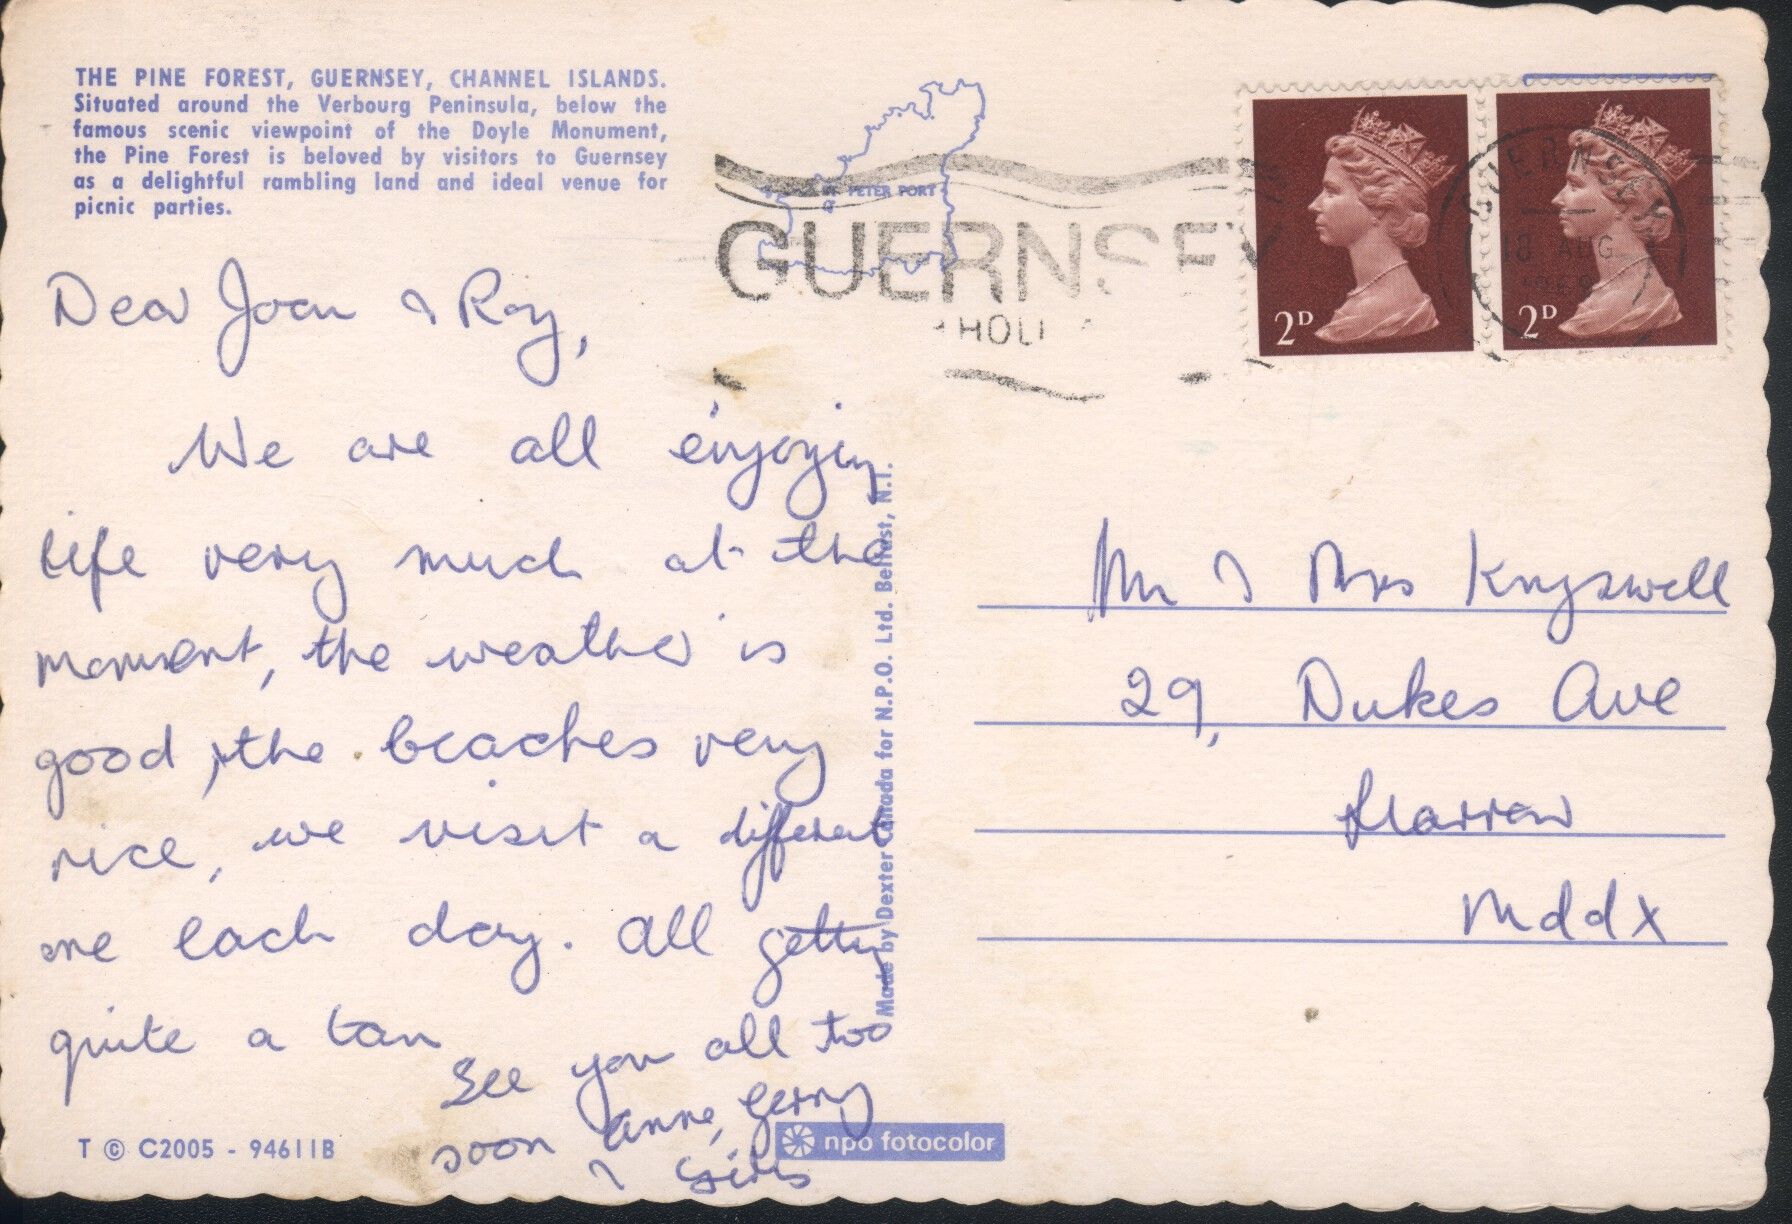 THE PINE FOREST, GUERNSEY, CHANNEL ISLANDS.
Situated around the Verbourg Peninsula, below the
famous scenic viewpoint of the Doyle Monument,
the Pine Forest is beloved by visitors to Guernsey
as a delightful rambling land and ideal venue for
picnic parties.
ST PETER PORT
GUERNSEY
HOLI
GUERNSEY
18 AUG
2D
2D
Dear Joan & Roy,
We are all enjoying
life very much at the
moment, the weather is
good, the beaches very
nice, we visit a different
one each day. All getting
quite a tan
See you all too
soon Anne, Gerry
& Girls
Made by Dexter Canada for N.P.O. Ltd. Belfast, N.I.
Mr & Mrs Kingswell
29, Dukes Ave
Harrow
Mddx
T © C2005 - 94611B
npo fotocolor